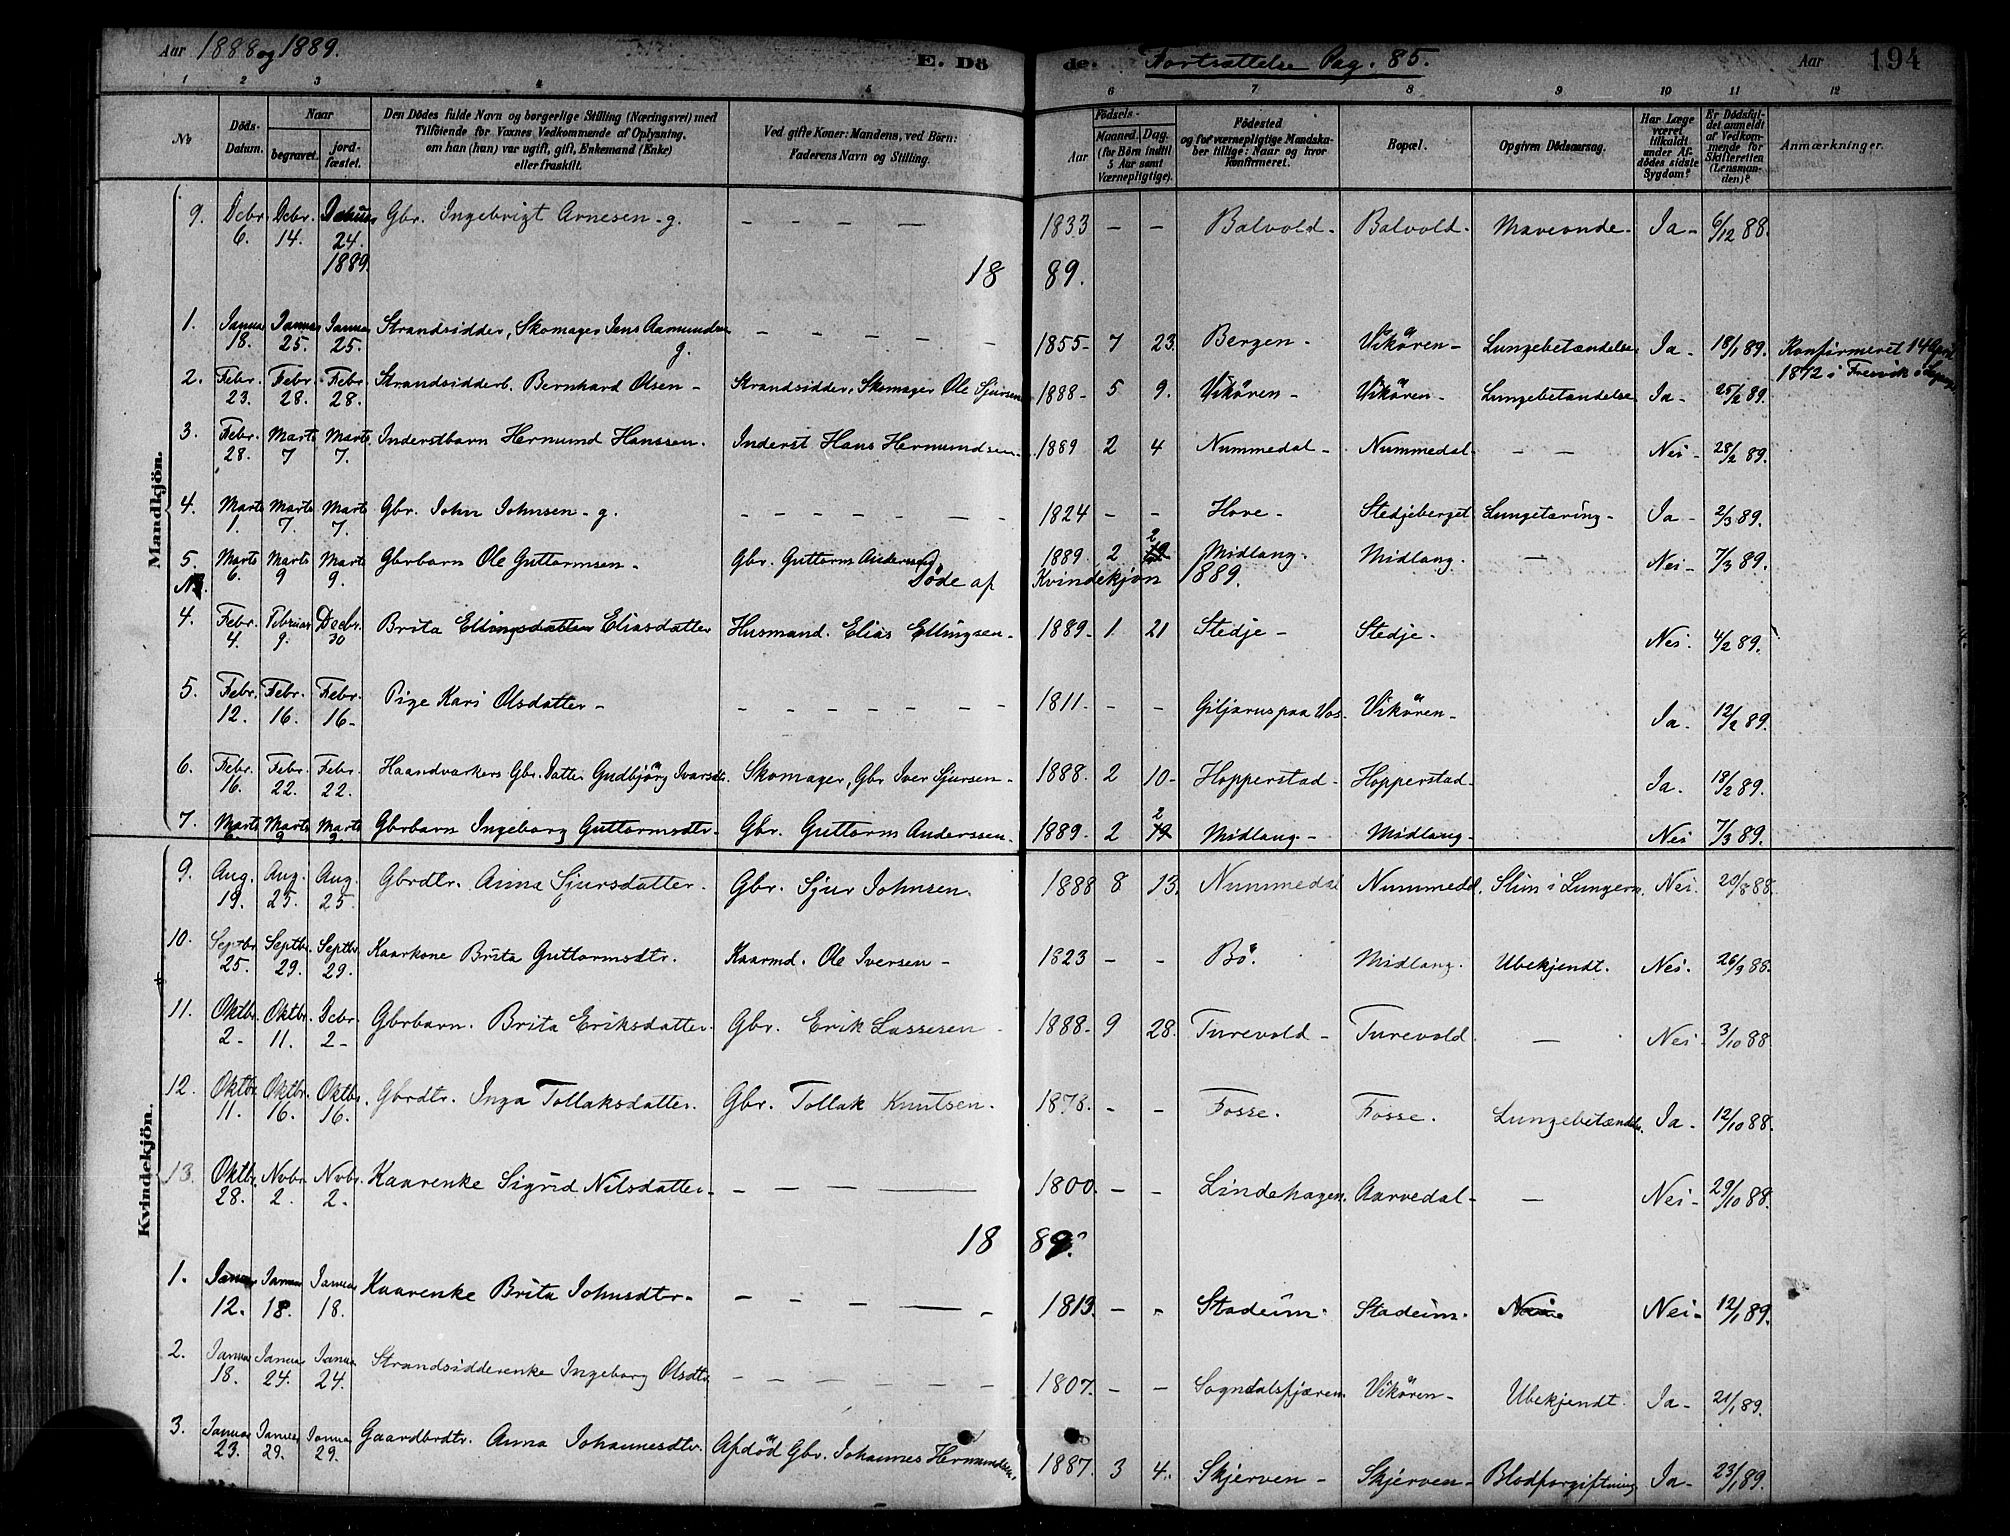 Aar 1888 og 1889. E. Döde. Fortsættelse Pag. 85. Aar 194
1 2 3 4 5 6 7 8 9 10 11 12
No
Döds-Datum.
Naar
begravet.
jord-fæstet.
Den Dödes fulde Navn og borgerlige Stilling (Næringsvei) med
Tilföiende for Voxnes Vedkommende af Oplysning,
om han (hun) var ugift, gift, Enkemand (Enke)
eller fraskilt.
Ved gifte Koner: Mandens, ved Börn:
Faderens Navn og Stilling.
Födsels-
Aar
Maaned. Dag.
(for Börn indtil
5 Aar samt
Værnepligtige).
Födested
og for værnepligtige Mandska-
ber tillige: Naar og hvor
konfirmeret.
Bopæl.
Opgiven Dödsaarsag.
Har Læge
været
tilkaldt
under Af-
dödes sidste
Sygdom?
Er Dödsfal-
det anmeldt
af Vedkom-
mende for
Skifteretten
(Lensman-
den)?
Anmærkninger.
Mandkjön.
9. Debr. 6. Debr. 14. 24. 1889. Gbr. Ingebrigt Arnesen - g. — — — — 1833 — — Balvold - Balvold - Maveonde - Ja - 6/12 88.
1889.
1. Januar 18. Januar 25. Januar 25. Strandsidder, Skomager Jens Aamundsen g. — — — — — 1855 - 7 23. Bergen - Vikören - Lungebetændelse Ja - 18/1 89. Konfirmeret 14 April 1872 i Fresvik i
2. Febr. 23. Febr. 28. Febr. 28. Strandsidderb. Bernhard Olsen - Strandsidder, Skomager Ole Sjursen 1888 - 5 9. Vikören - Vikören - Lungebetændelse Ja - 25/2 89.
3. Febr. 28. Marts 7 Marts 7. Inderstbarn Hermund Hanssen. Inderst Hans Hermundsen. 1889 2 4 Nummedal - Nummedal - — — Nei - 28/2 89.
4. Marts 1. Marts 7. Marts 7. Gbr. John Johnsen - g. — — — — — — 1824 — — Hove - Stedjeberget Lungetæring - Ja - 2/3 89.
5. Marts 6. Marts 9 Marts 9. Gbrbarn Ole Guttormsen - Gbr. Guttorm Anderssen 1889 2 2 19 Midlang. Midlang. — Nei - 7/3 89.
NB. Döde af Kvindekjön 1889.
4. Febr. 4. Februar 9. Decbr. 30 Brita Ellingsdatter Eliasdatter Husmand. Elias Ellingsen - 1889 - 1 21 Stedje - Stedje - Nei. 4/2 89.
5. Febr. 12. Febr. 16. Febr. 16 - Pige Kari Olsdatter - — — — — — — 1811 - — — Giljarus paa Vos - Vikören - Ja. 12/2 89.
6. Febr. 16. Febr. 22. Febr. 22. Haandværkers Gbr. Datter Gudbjörg Ivarsdtr. Skomager, Gbr Iver Sjursen - 1888. 2 10 - Hopperstad - Hopperstad - Ja. 18/2 89.
7. Marts 6. Marts 9 Marts 9. Gbrbarn Ingeborg Guttormsdtr. Gbr. Guttorm Anderssen. 1889 - 2 2 19 Midlang - Midlang - Nei 7/3 89.
Kvindekjön.
9. Aug. 19. Aug. 25. Aug. 25. Gbrdtr. Anna Sjursdatter. Gbr. Sjur Johnsen. 1888 8 13. Nummedal Nummedal. Slim i Lungern. Nei. 20/8 88.
10. Septbr. 25. Septbr. 29. Septbr. 29. Kaarkone Brita Guttormsdtr. Kaarmd. Ole Iversen - 1823 — — Bö. Midlang. Ubekjendt. Nei. 26/9 88.
11. Oktbr. 2 - Oktbr. 11. Debr. 2 - Gbrbarn. Brita Eriksdatter. Gbr. Erik Lassesen - 1888 - 9 28. Turevold - Turevold. — Nei - 3/10 88.
12. Oktbr. 11. Oktbr. 16. Oktbr. 16. Gbrdtr. Inga Tollaksdatter. Gbr. Tollak Knutsen. 1878. — — Fosse. Fosse. Lungebetændelse. Ja - 12/10 88.
13. Oktbr. 28. Novbr. 2. Novbr. 2. Kaarenke Sigrid Nilsdatter. — — — — 1800. — — Lindehagen. Aarvedal - — Nei - 29/10 88.
1889.
1. Januar 12. Januar 18. Januar 18. Kaarenke Brita Johnsdtr. — — — — - 1813 — - Stadeim. Stadeim. Nei - 12/1 89.
2. Januar 18. Januar 24. Januar 24. Strandsidderenke Ingeborg Olsdtr — — — — — — 1807. — — Sogndalsfjæren Vikören - Ubekjendt. Ja - 21/1 89.
3. Januar 23. Januar 29. Januar 29. Gaardbrdtr. Anna Johannesdtr. Afdöd Gbr. Johannes Hermundsen. 1887. 3 4. Skjerven - Skjerven - Blodforgiftning Ja - 23/1 89.